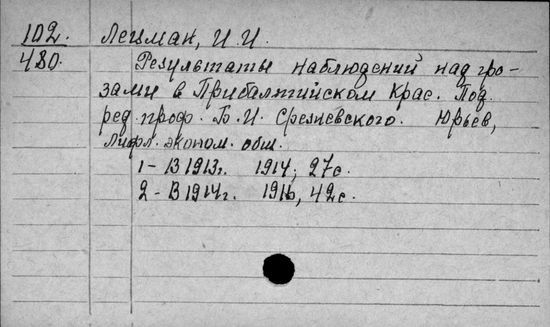 102. Лейман, И. И.
480. Результаты наблюдений над гро-
зами в Прибалтийском Крае. Под
ред. проф. Б. И. Срезневского. Юрьев,
Лифл. эконом. общ.
1 – В 1913г. 1914, 27 с.
2 – В 1914г. 1916, 42 с.